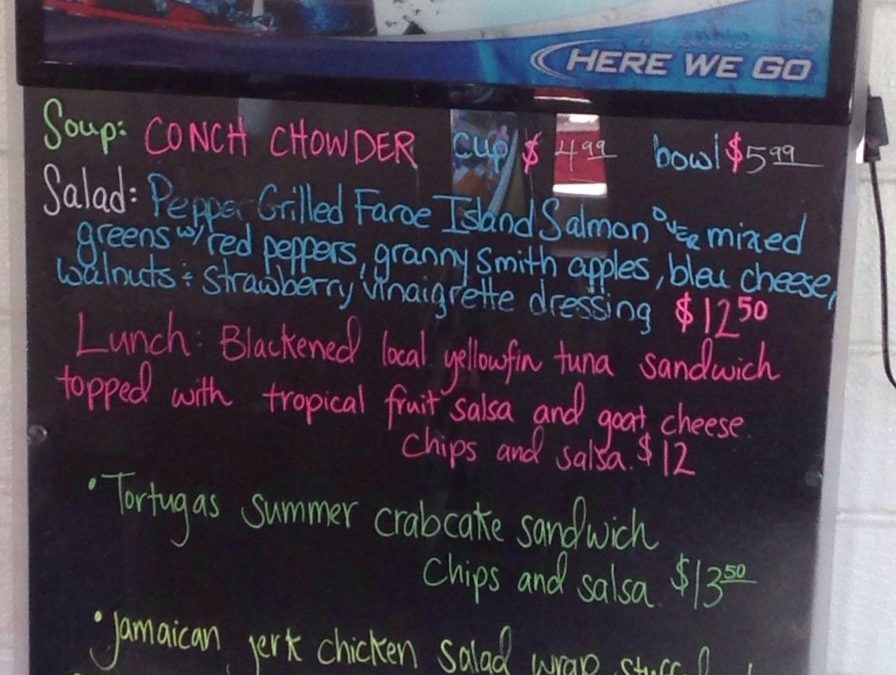 HERE WE GO
Soup: CONCH CHOWDER cup $4.99 bowl $5.99
Salad: Pepper Grilled Faroe Island Salmon OVER mixed
greens w/ red peppers, granny smith apples, bleu cheese,
walnuts & strawberry vinaigrette dressing $12.50
Lunch: Blackened local yellowfin tuna sandwich
topped with tropical fruit salsa and goat cheese
chips and salsa. $12
• Tortugas summer crabcake sandwich
chips and salsa $13.50
• Jamaican jerk chicken salad wrap